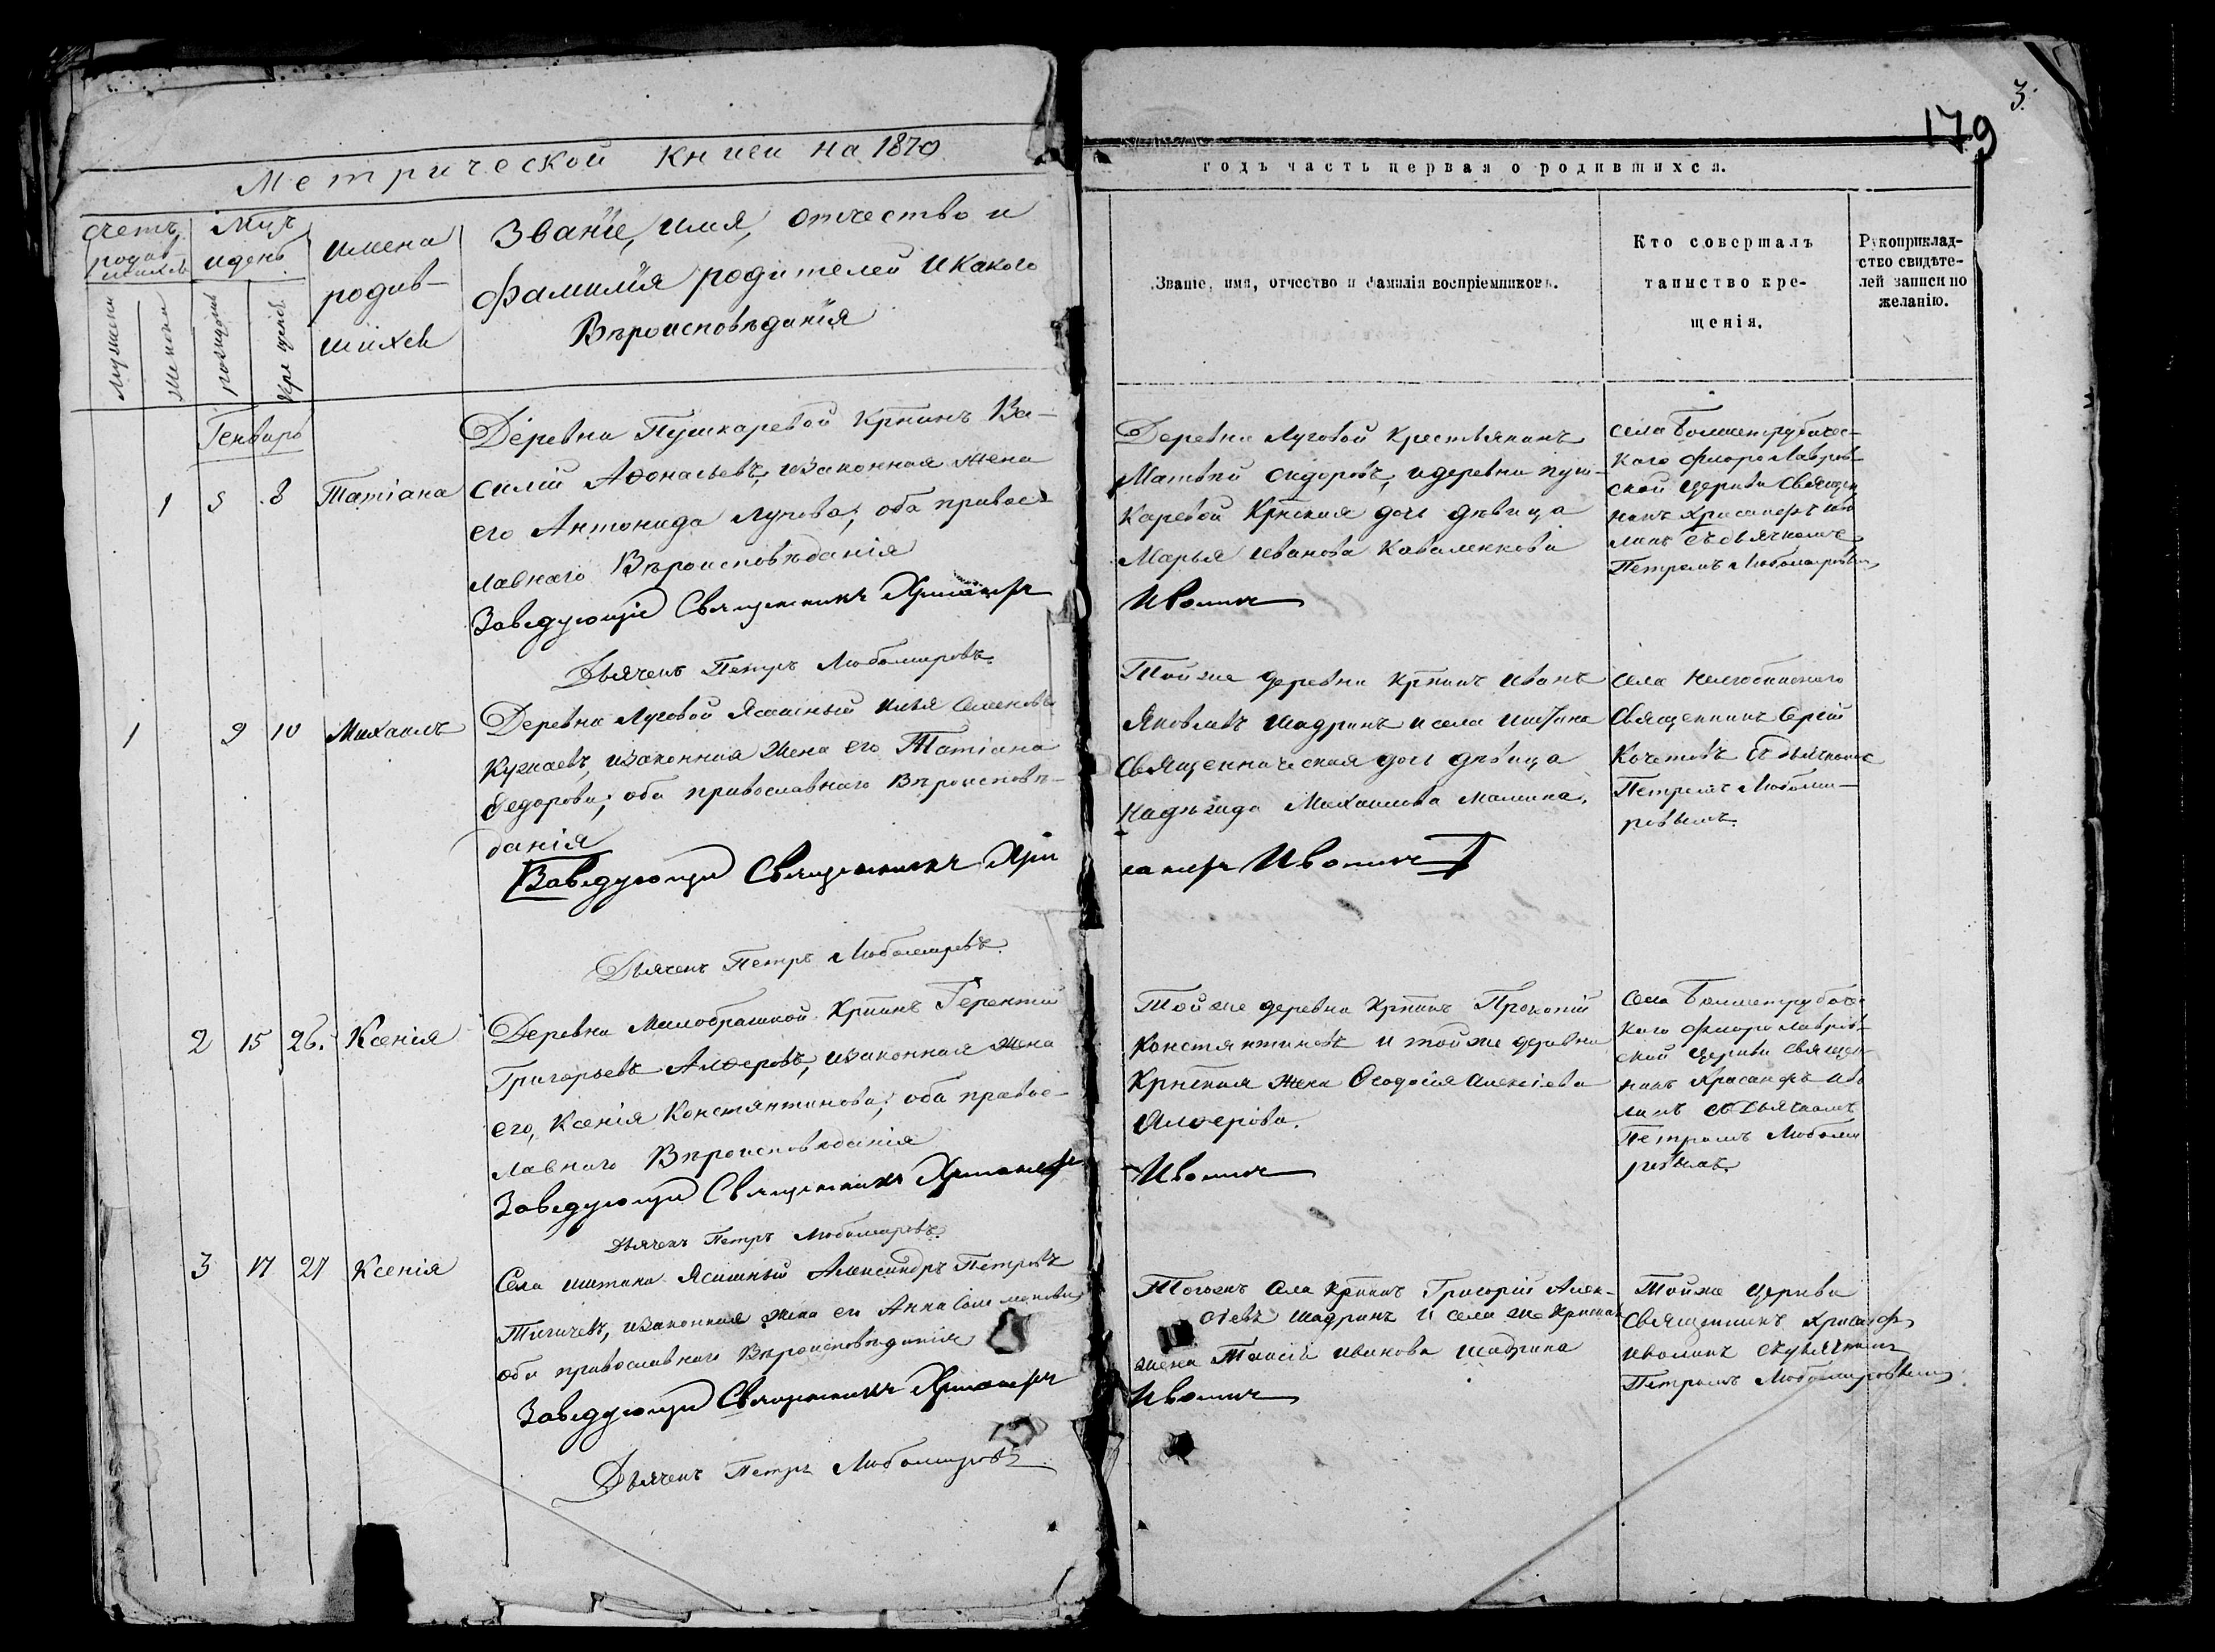 3.
179
Метрической Книги на 1870
годъ часть первая о родившихся.
счетъ родив-шихся
Мцъ и день
имена родив-шихся
Званіе, имя, отчество и фамилія родителей и какого Вѣроисповѣданія
Званіе, имя, отчество и фамилія воспріемниковъ.
Кто совершалъ таинство кре-щенія.
Рукоприклад-ство свидѣте-лей записи по желанію.
мужеска
женска
рожденія
крещенія
Генварь
1 5 8 Татіана
Деревни Пушкаревой Крпинъ Ва-
силій Аѳонасьевъ, изаконная жена
его Антонида Лукова; оба правос-
лавнаго Вѣроисповѣданія
Заведующій Священникъ Хрисанфъ
Дьячекъ Петръ Любомировъ.
Деревни Луговой Крестьянинъ
Матвѣй Сидоровъ, и деревни Пуш-
каревой Крпская дочь дѣвица
Марья Иванова Коваленкова
Иволинъ
села Большетрубачес-
каго Флоро Лавров-
ской Церкви Священ
никъ Хрисанфъ Иво
линъ съ дьячкомъ
Петромъ Любомировым
1 9 10 Михаилъ
Деревни Луговой Ясашный Илья Семеновъ
изаконная жена его Татіана
Ѳедорова; оба православнаго Вѣроисповѣ-
данія
Заведующи Священникъ Хри
Дьячекъ Петръ Любомировъ.
Той же деревни Крпинъ Иванъ
Яковлевъ Шадринъ и села Иштана
Священническая дочь дѣвица
Надѣжда Михаилова Малина.
санфъ Иволинъ
Села Нелюбинскаго
Священникъ Сергій
Кочетовъ съ дьячкомъ
Петромъ Любоми-
ровымъ.
2 15 26. Ксенія
Деревни Малобрагиной Крпинъ Терентій
Григорьевъ Алѳеровъ, изаконная жена
его, Ксенія Константинова; оба правос-
лавнаго Вѣроисповѣданія
Заведующи Священникъ Хрисанфъ
Дьячекъ Петръ Любомировъ.
Той же деревни Крпинъ Прокопій
Константиновъ и той же деревни
Крпская жена Ѳеодосія Алексіева
Алѳерова.
Иволинъ
Села Большетрубачес
каго Флоро Лавров-
ской Церкви Священ
никъ Хрисанфъ Иво
линъ съ Дьячкомъ
Петромъ Любоми
ровымъ.
3 17 27 Ксенія
Села Иштана Ясашный Александръ Петровъ
изаконная жена ег Анна
оба православнаго Вѣроисповѣданія
Заведующи Священникъ Хрисанфъ
Дьячекъ Петръ Любомировъ
Тогожъ села Крпинъ Григорій Алек-
сіевъ Шадринъ и села же Крпская
жена Таисія Иванова Шадрина
Иволинъ
Той же Церкви
Священникъ Хрисанф
Иволинъ съ дьячкомъ
Петромъ Любомировымъ